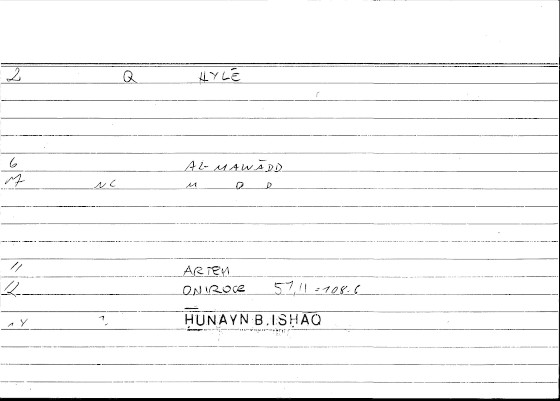 2 Q HYLĒ
6 AL-MAWĀDD
7 NC M D D
11 ARTEM
12 ONIROCR 57,11 = 108.6
14 1. ḤUNAYN B. ISḤĀQ